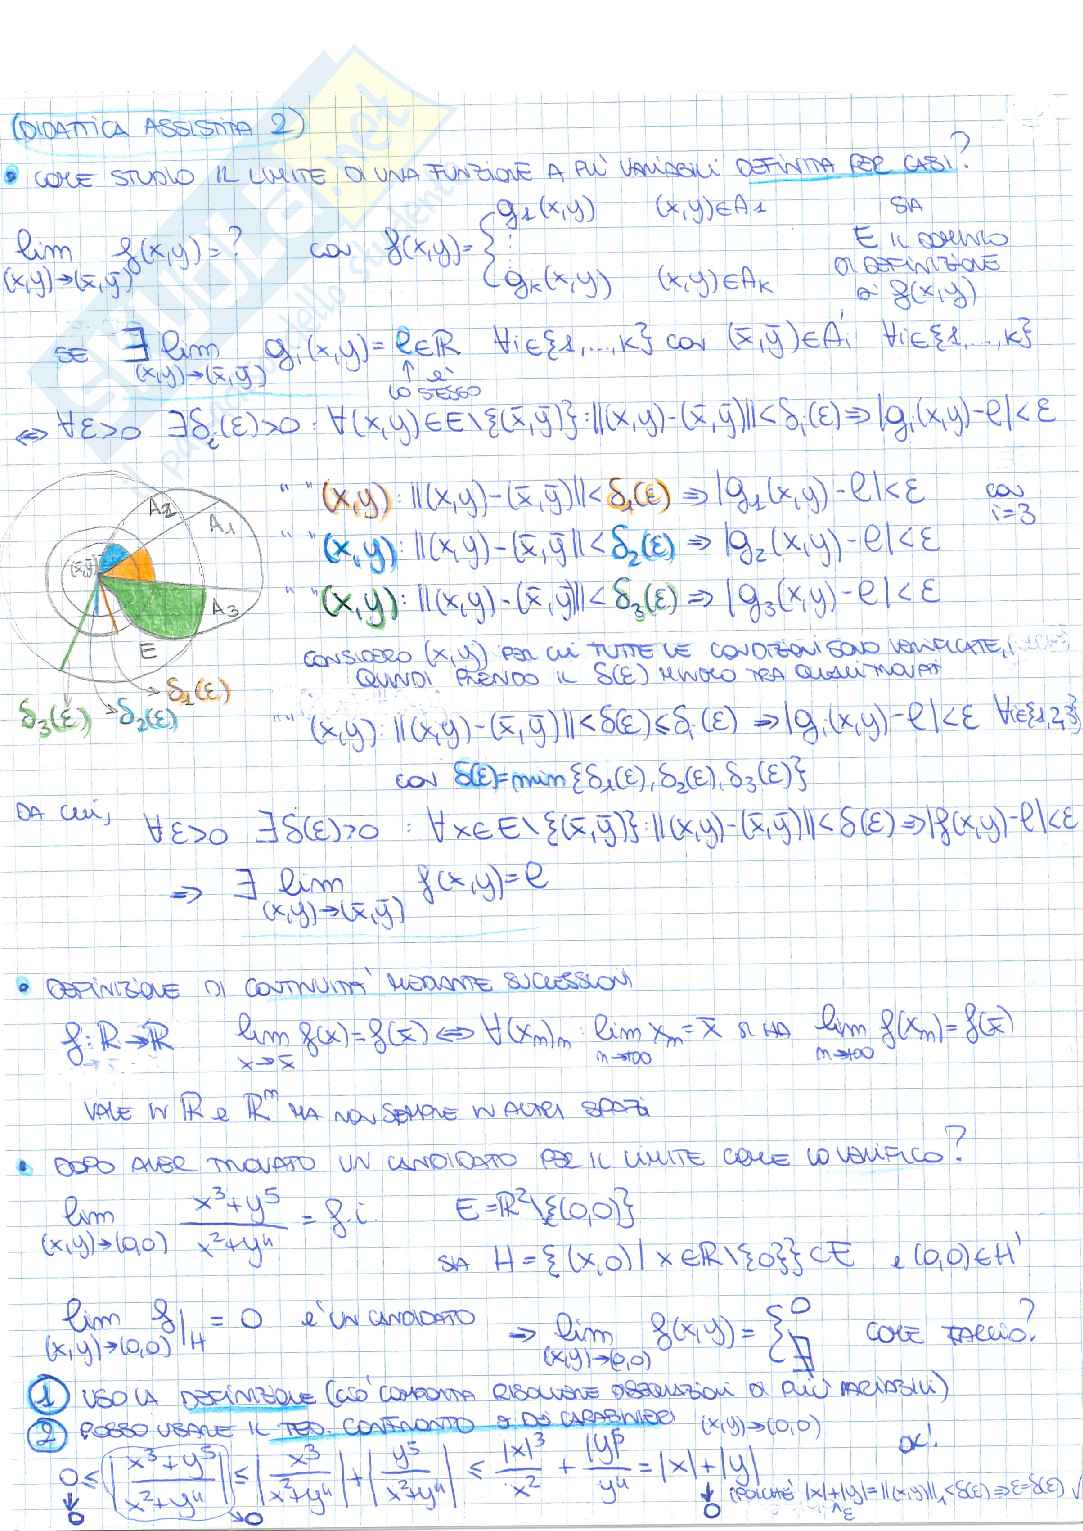 (DIDATTICA ASSISTITA 2)
• COME STUDIO IL LIMITE DI UNA FUNZIONE A PIÙ VARIABILI DEFINITA PER CASI?
lim f(x,y)=? con f(x,y)= { g1(x,y) (x,y)∈A1 SIA
(x,y)→(x̄,ȳ) ⋮ E IL DOMINIO
gk(x,y) (x,y)∈Ak DI DEFINIZIONE
di f(x,y)
SE ∃ lim gi(x,y)=ℓ∈ℝ ∀i∈{1,...,k} con (x̄,ȳ)∈A'i ∀i∈{1,...,k}
(x,y)→(x̄,ȳ) ↑ è
LO STESSO
⇔ ∀ε>0 ∃δi(ε)>0 : ∀(x,y)∈E\{(x̄,ȳ)} : ||(x,y)-(x̄,ȳ)||<δi(ε) ⇒ |gi(x,y)-ℓ|<ε
" " (x,y) : ||(x,y)-(x̄,ȳ)||<δ1(ε) ⇒ |g1(x,y)-ℓ|<ε con
i=3
" " (x,y) : ||(x,y)-(x̄,ȳ)||<δ2(ε) ⇒ |g2(x,y)-ℓ|<ε
" " (x,y) : ||(x,y)-(x̄,ȳ)||<δ3(ε) ⇒ |g3(x,y)-ℓ|<ε
A2
A1
(x̄,ȳ)
A3
E
δ1(ε)
δ3(ε) δ2(ε)
CONSIDERO (x,y) PER CUI TUTTE LE CONDIZIONI SONO VERIFICATE,
QUINDI PRENDO IL δ(ε) MINORE TRA QUELLI TROVATI
" " (x,y) : ||(x,y)-(x̄,ȳ)||<δ(ε)≤δi(ε) ⇒ |gi(x,y)-ℓ|<ε ∀i∈{1,2,3}
con δ(ε)=min{δ1(ε),δ2(ε),δ3(ε)}
DA CUI, ∀ε>0 ∃δ(ε)>0 : ∀x∈E\{(x̄,ȳ)} : ||(x,y)-(x̄,ȳ)||<δ(ε) ⇒ |f(x,y)-ℓ|<ε
⇒ ∃ lim f(x,y)=ℓ
(x,y)→(x̄,ȳ)
• DEFINIZIONE DI CONTINUITÀ MEDIANTE SUCCESSIONI
f:ℝ→ℝ lim f(x)=f(x̄) ⇔ ∀(xn)n : lim xn=x̄ SI HA lim f(xn)=f(x̄)
x→x̄ n→+∞ n→+∞
VALE IN ℝ e ℝⁿ MA NON SEMPRE IN ALTRI SPAZI
• DOPO AVER TROVATO UN CANDIDATO PER IL LIMITE COME LO VERIFICO?
lim (x³+y⁵)/(x²+y⁴) = f.i. E=ℝ²\{(0,0)}
(x,y)→(0,0)
SIA H={(x,0) | x∈ℝ\{0}}⊂E e (0,0)∈H'
lim f|H = 0 è UN CANDIDATO ⇒ lim f(x,y)= { 0 COME FACCIO?
(x,y)→(0,0) (x,y)→(0,0) ∄
① USO LA DEFINIZIONE (CIÒ COMPORTA RISOLVERE DISEQUAZIONI DI PIÙ VARIABILI)
② POSSO USARE IL TEO. CONFRONTO o DEI CARABINIERI (x,y)→(0,0)
0 ≤ |(x³+y⁵)/(x²+y⁴)| ≤ |x³/(x²+y⁴)| + |y⁵/(x²+y⁴)| ≤ |x|³/x² + |y|⁵/y⁴ = |x|+|y| OK!
↓ 0 → 0 ↓ 0 (POICHÉ |x|+|y|=||(x,y)||₁<δ(ε) ⇒ ε=δ(ε) √
<ε